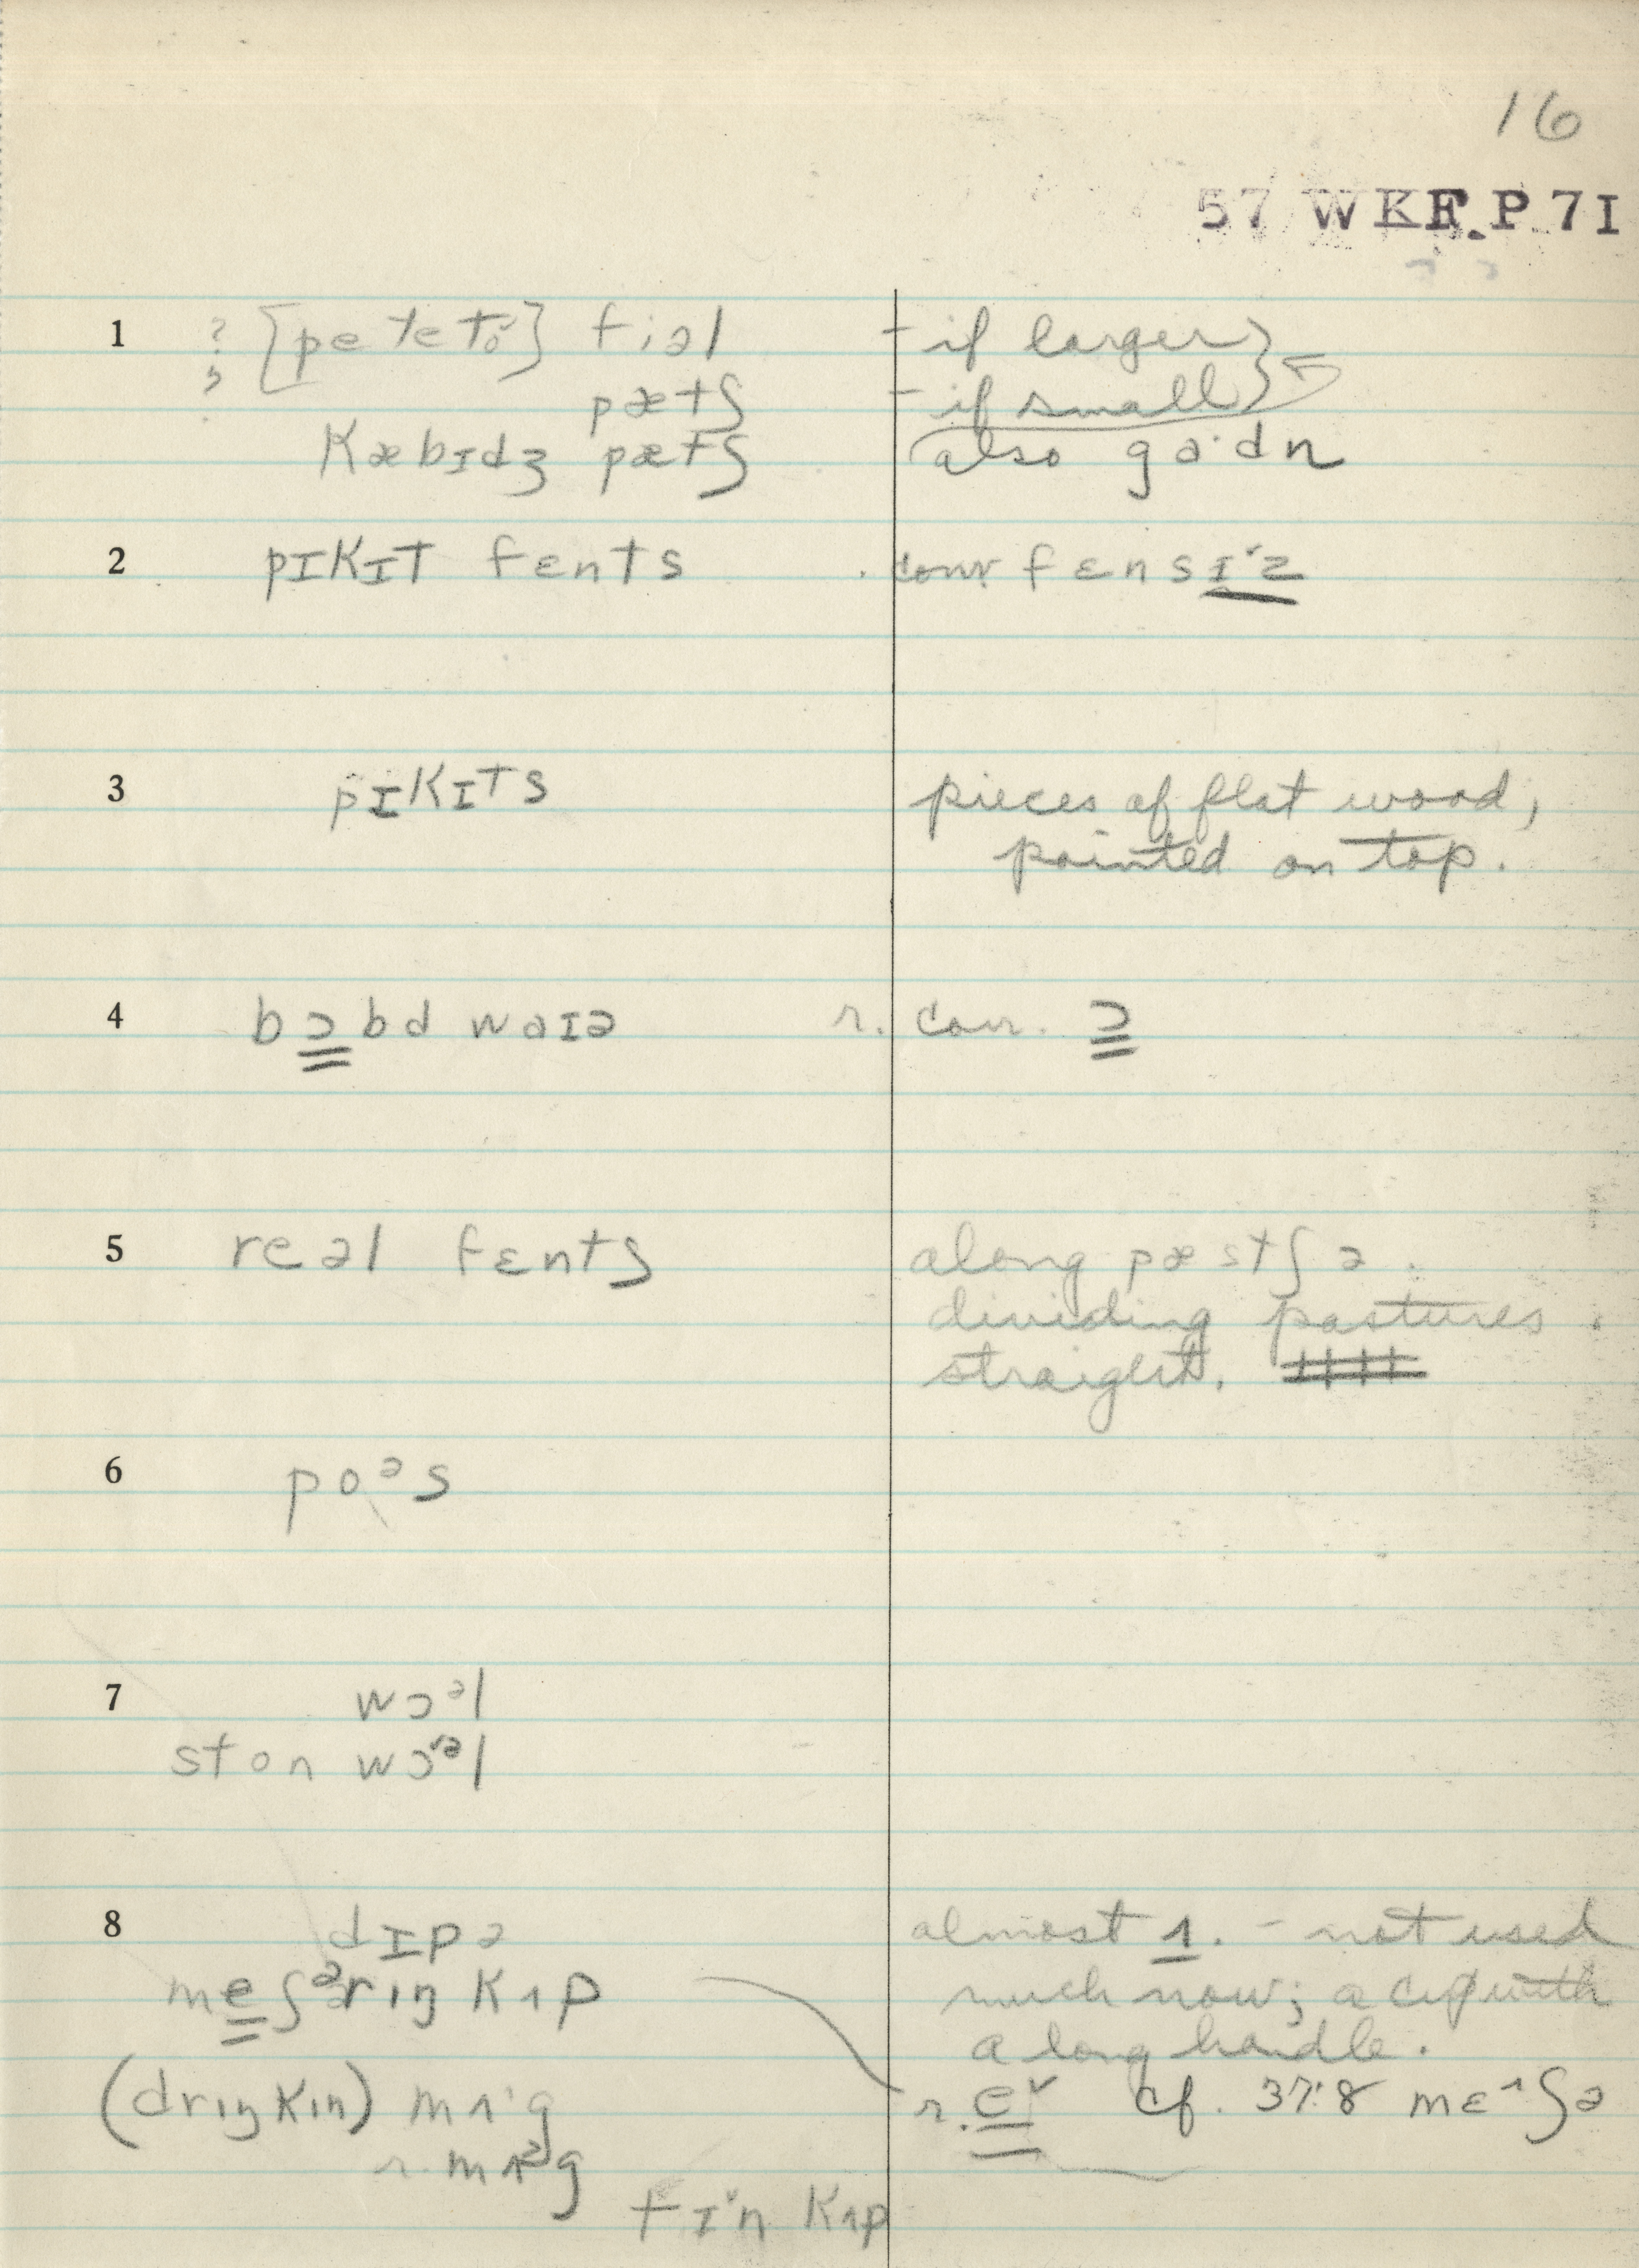 16
57 WKF.P 7I
1 ? [peteto̬] fiəl – if larger
pætʃ – if small
kæbɪdʒ pætʃ also ga·dn
2 pɪkɪt fents . corr fɛnsɪˇz
3 pɪkɪts pieces of flat wood,
pointed on top.
4 bɔbd waɪə r. corr. ɔ
5 reəl fɛntʃ along pæstʃə.
dividing pastures.
straight.
6 poᵊs
7 wɔᵊl
ston wɔˇᵊl
8 dɪpə almost ʌ. – not used
meʃᵊrɪŋ kʌp much now; a cup with
a long handle.
(drɪŋkɪn) mʌ·g r. eˇ cf. 37:8 mɛ^ʃə
r. mʌᵊg
tɪˇn kʌp